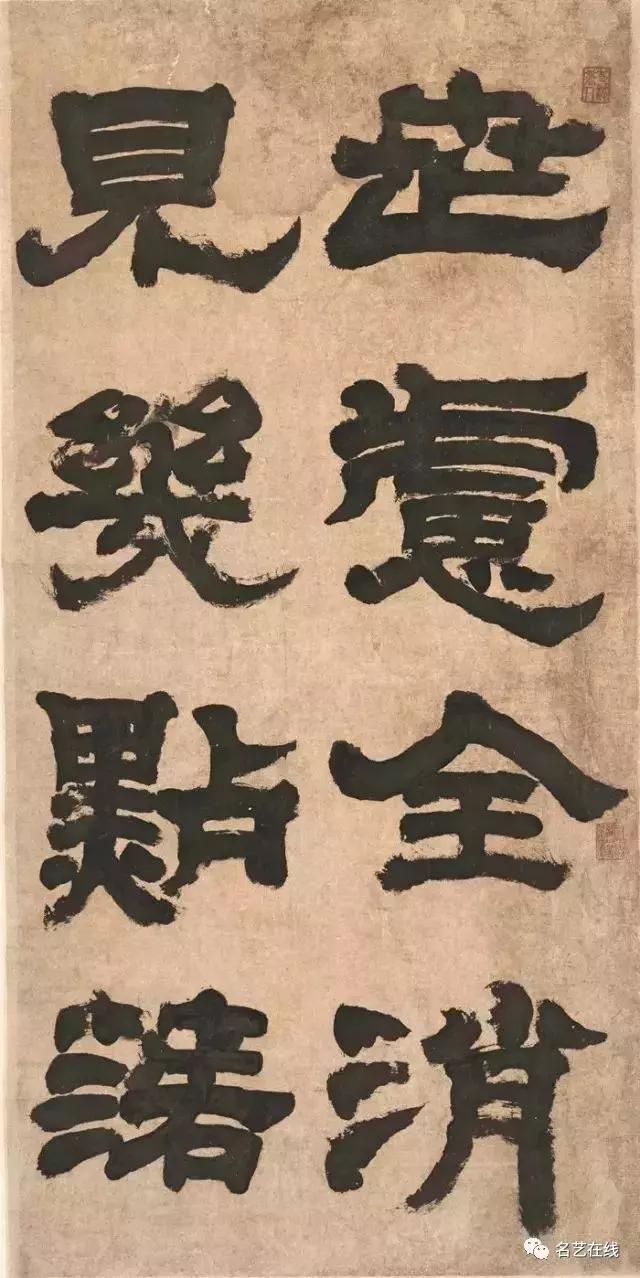 世慮全消
見幾點渚
名艺在线